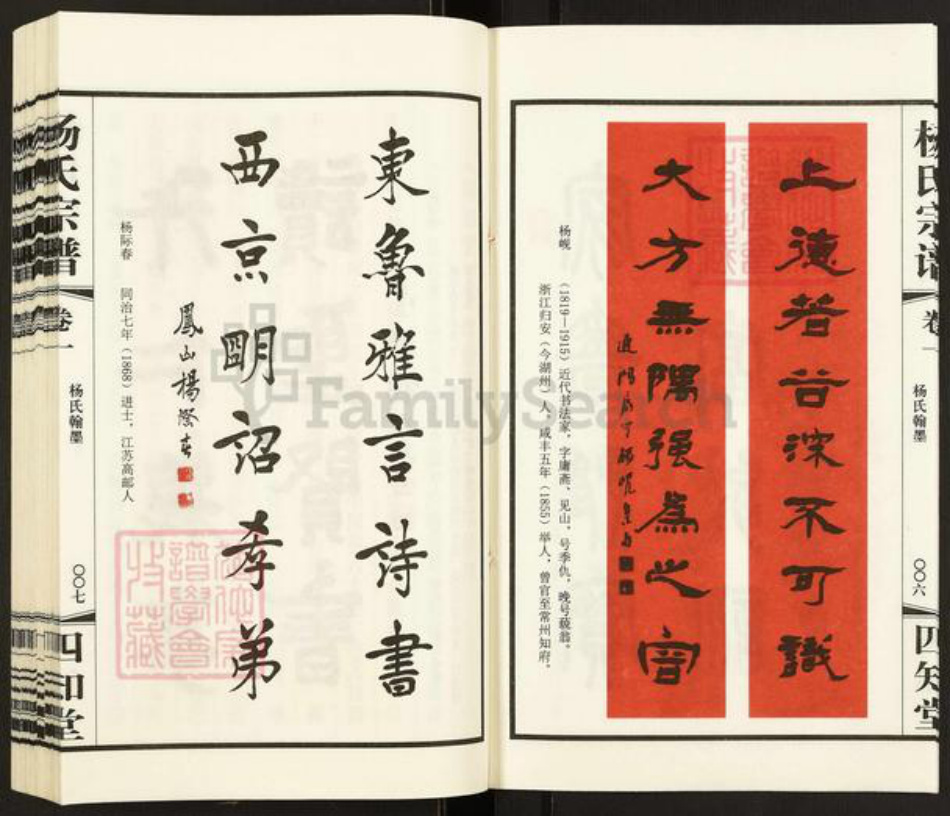 杨氏宗谱
卷一
杨氏翰墨
〇〇六
四知堂
上德若谷深不可識
大方無隅强為之容
杨岘
(1819—1915)近代书法家，字庸斋、见山，号季仇，晚号藐翁。
浙江归安(今湖州)人。咸丰五年(1855)举人，曾官至常州知府。
東魯雅言詩書
西京明詔孝弟
鳳山楊際春
杨际春 同治七年(1868)进士，江苏高邮人
譜學會
收藏
杨氏宗谱
卷一
杨氏翰墨
〇〇七
四知堂
FamilySearch